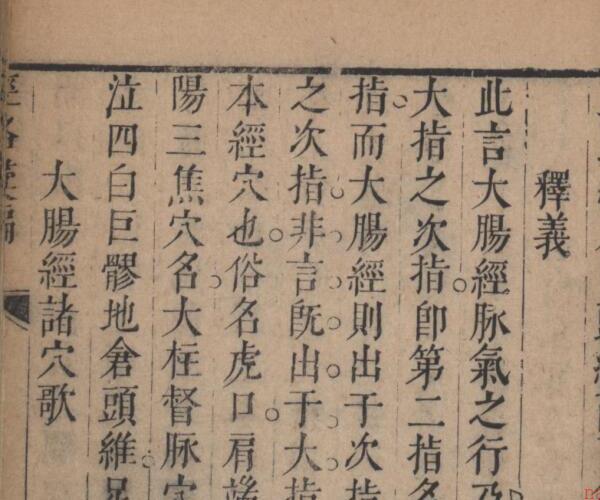 釋義
此言大腸經脉氣之行乃
大指之次指卽第二指名
指而大腸經則出于次指
之次指非言旣出于大指
本經穴也俗名虎口肩
陽三焦穴名大柱督脉
泣四白巨髎地倉頭維
大腸經諸穴歌
經絡